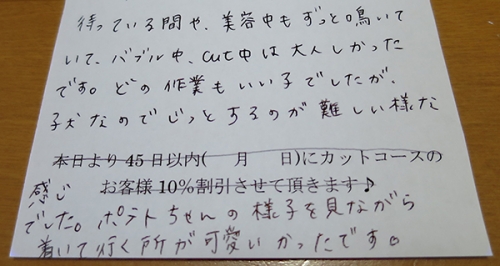 待っている間や、美容中もずっと鳴いて
いて、バブル中、cut中は大人しかった
です。どの作業もいい子でしたが、
子犬なのでじっとするのが難しい様な
本日より45日以内(　月　日)にカットコースの
感じ　お客様10%割引させて頂きます♪
でした。ポテトちゃんの様子を見ながら
着いて行く所が可愛いかったです。